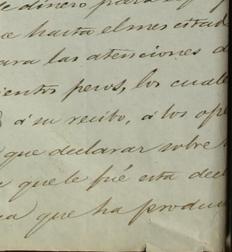 de dinero para
e hasta el mes citad
ara las atenciones d
ientos pesos, los cuale
á su recibo, á los ofre
que declarar sobre
a que le fué esta decl
ia que ha produci